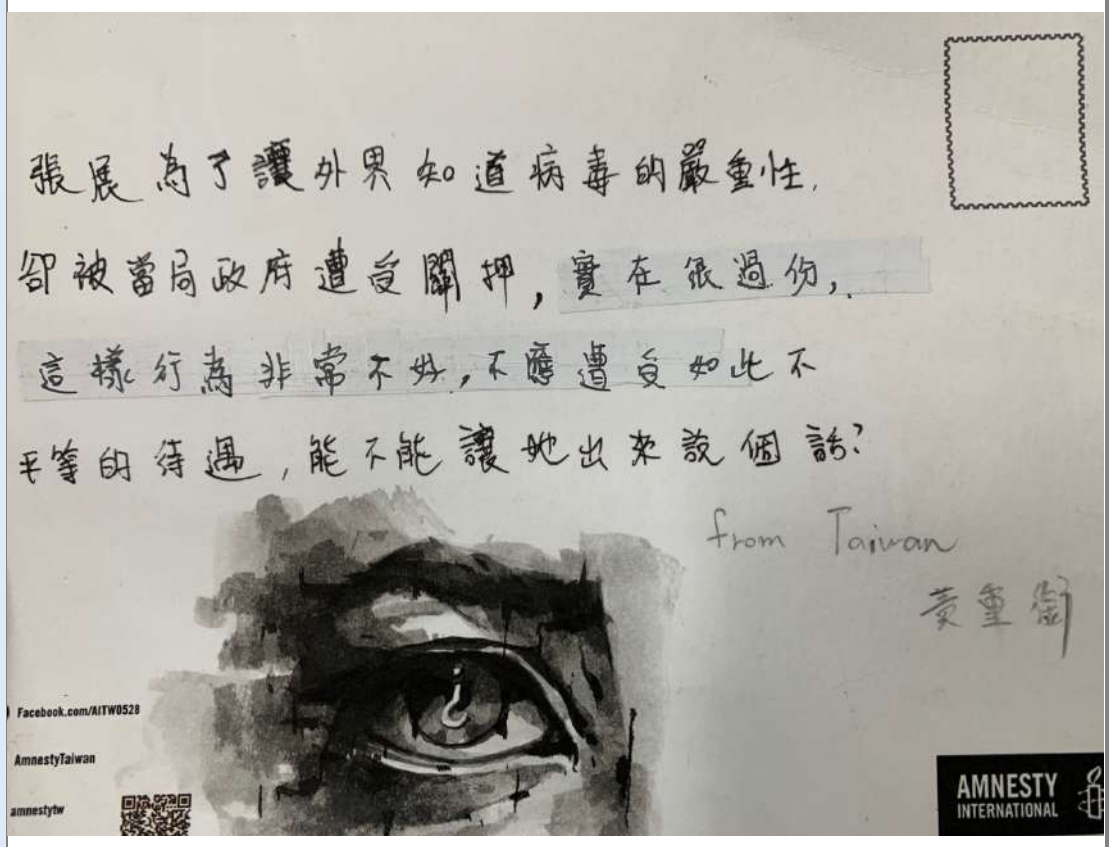 張展為了讓外界知道病毒的嚴重性,
卻被當局政府遭受關押,實在很過份,
這樣行為非常不好,不應遭受如此不
平等的待遇,能不能讓她出來說個話?
from Taiwan
黃重衛
Facebook.com/AITW0528
AmnestyTaiwan
amnestytw
AMNESTY
INTERNATIONAL